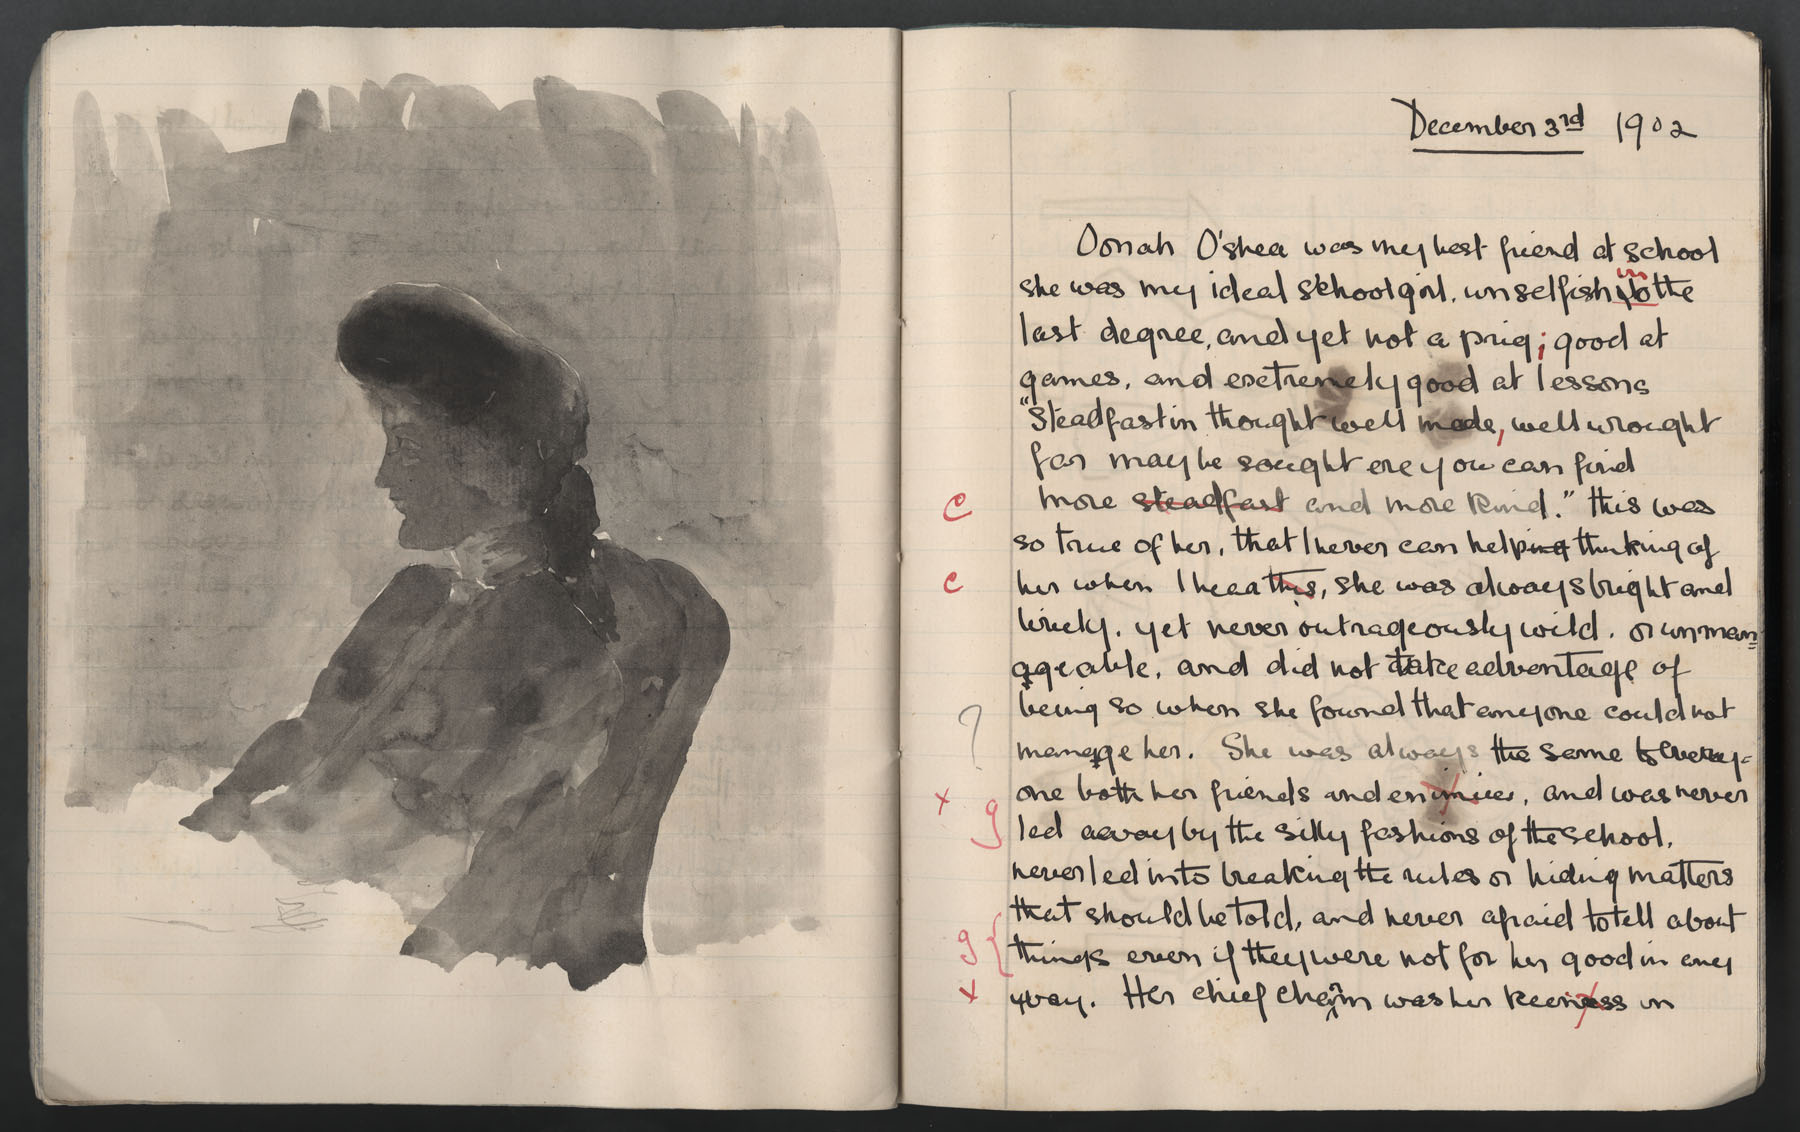 December 3rd 1902
Oonah O'shea was my best friend at school
she was my ideal schoolgirl. unselfish to the
in
last degree, and yet not a prig; good at
games, and exctremely good at lessons
"Steadfast in thought well made, well wrought
far may be sought ere you can find
c
more steadfast and more kind." this was
so true of her, that I never can helping thinking of
c
her when I hear this, she was always bright and
lively, yet never outrageously wild, or unman=
ageable, and did not take advantage of
being so when she found that anyone could not
?
manage her. She was always the same to every=
x
one both her friends and enimies, and was never
g
led away by the silly fashions of the school,
never led into breaking the rules or hiding matters
that should be told, and never afraid to tell about
g
things even if they were not for her good in any
x
way. Her chief charm was her keeness in